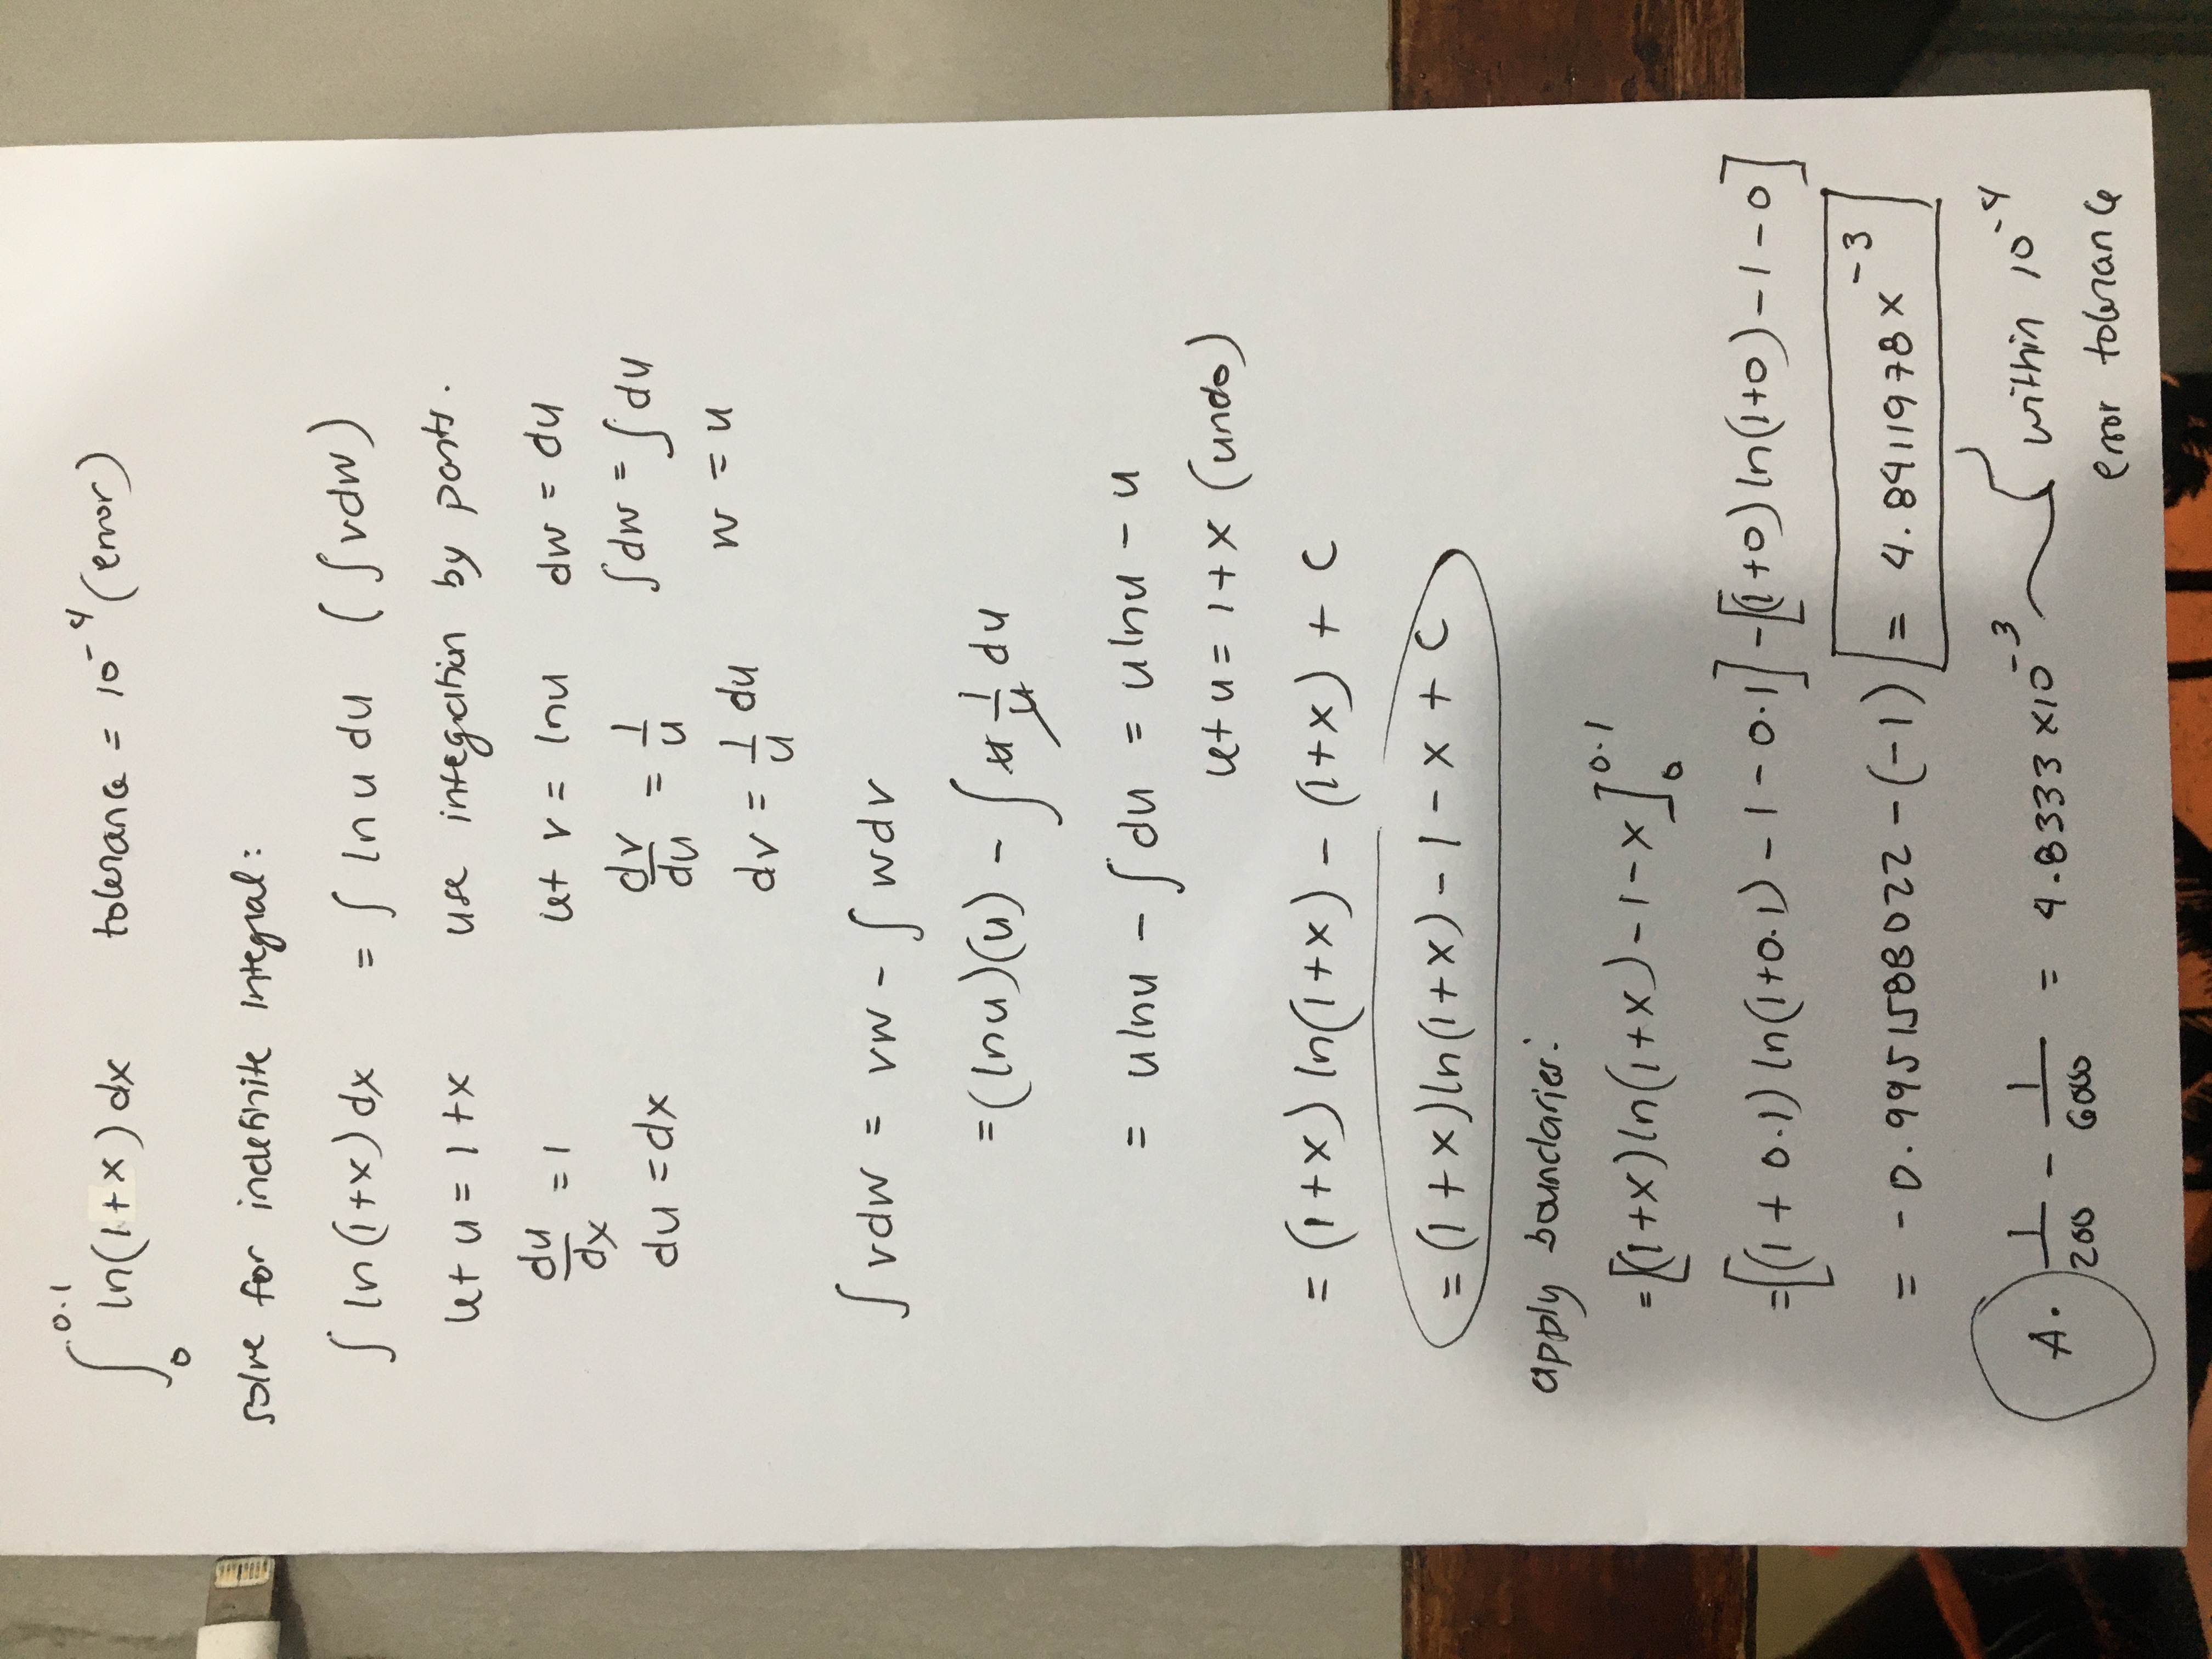 ∫₀^0.1 ln(1+x)dx tolerance = 10⁻⁴ (error)
solve for indefinite integral:
∫ ln(1+x)dx = ∫ ln u du (∫vdw)
let u = 1+x use integration by parts.
du/dx = 1 let v = lnu dw = du
du = dx dv/du = 1/u ∫dw = ∫du
dv = 1/u du w = u
∫vdw = vw - ∫wdv
=(lnu)(u) - ∫ u 1/u du
= ulnu - ∫du = ulnu - u
let u = 1+x (undo)
= (1+x) ln(1+x) - (1+x) + C
= (1+x)ln(1+x) - 1 - x + C
apply boundaries:
= [(1+x)ln(1+x) - 1 - x]₀^0.1
= [(1+0.1)ln(1+0.1) - 1 - 0.1] - [(1+0)ln(1+0) - 1 - 0]
= -0.9951588022 - (-1) = 4.8411978x⁻³
A. 1/200 - 1/6000 = 4.8333x10⁻³ within 10⁻⁴
error tolerance